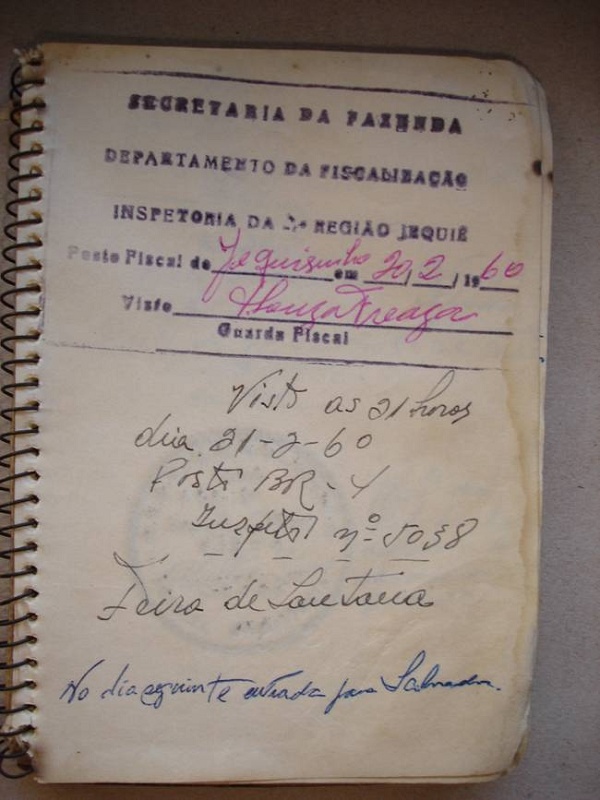 SECRETARIA DA FAZENDA
DEPARTAMENTO DA FISCALIZAÇÃO
INSPETORIA DA REGIÃO JEQUIÉ
Posto Fiscal de Jequiezinho em 20/2/1960
Visto
Guarda Fiscal
Visto as 21 horas
dia 21-2-60
Posto BR-4
nº 5038
Feira de Santana
No dia seguinte entrada para Salvador.